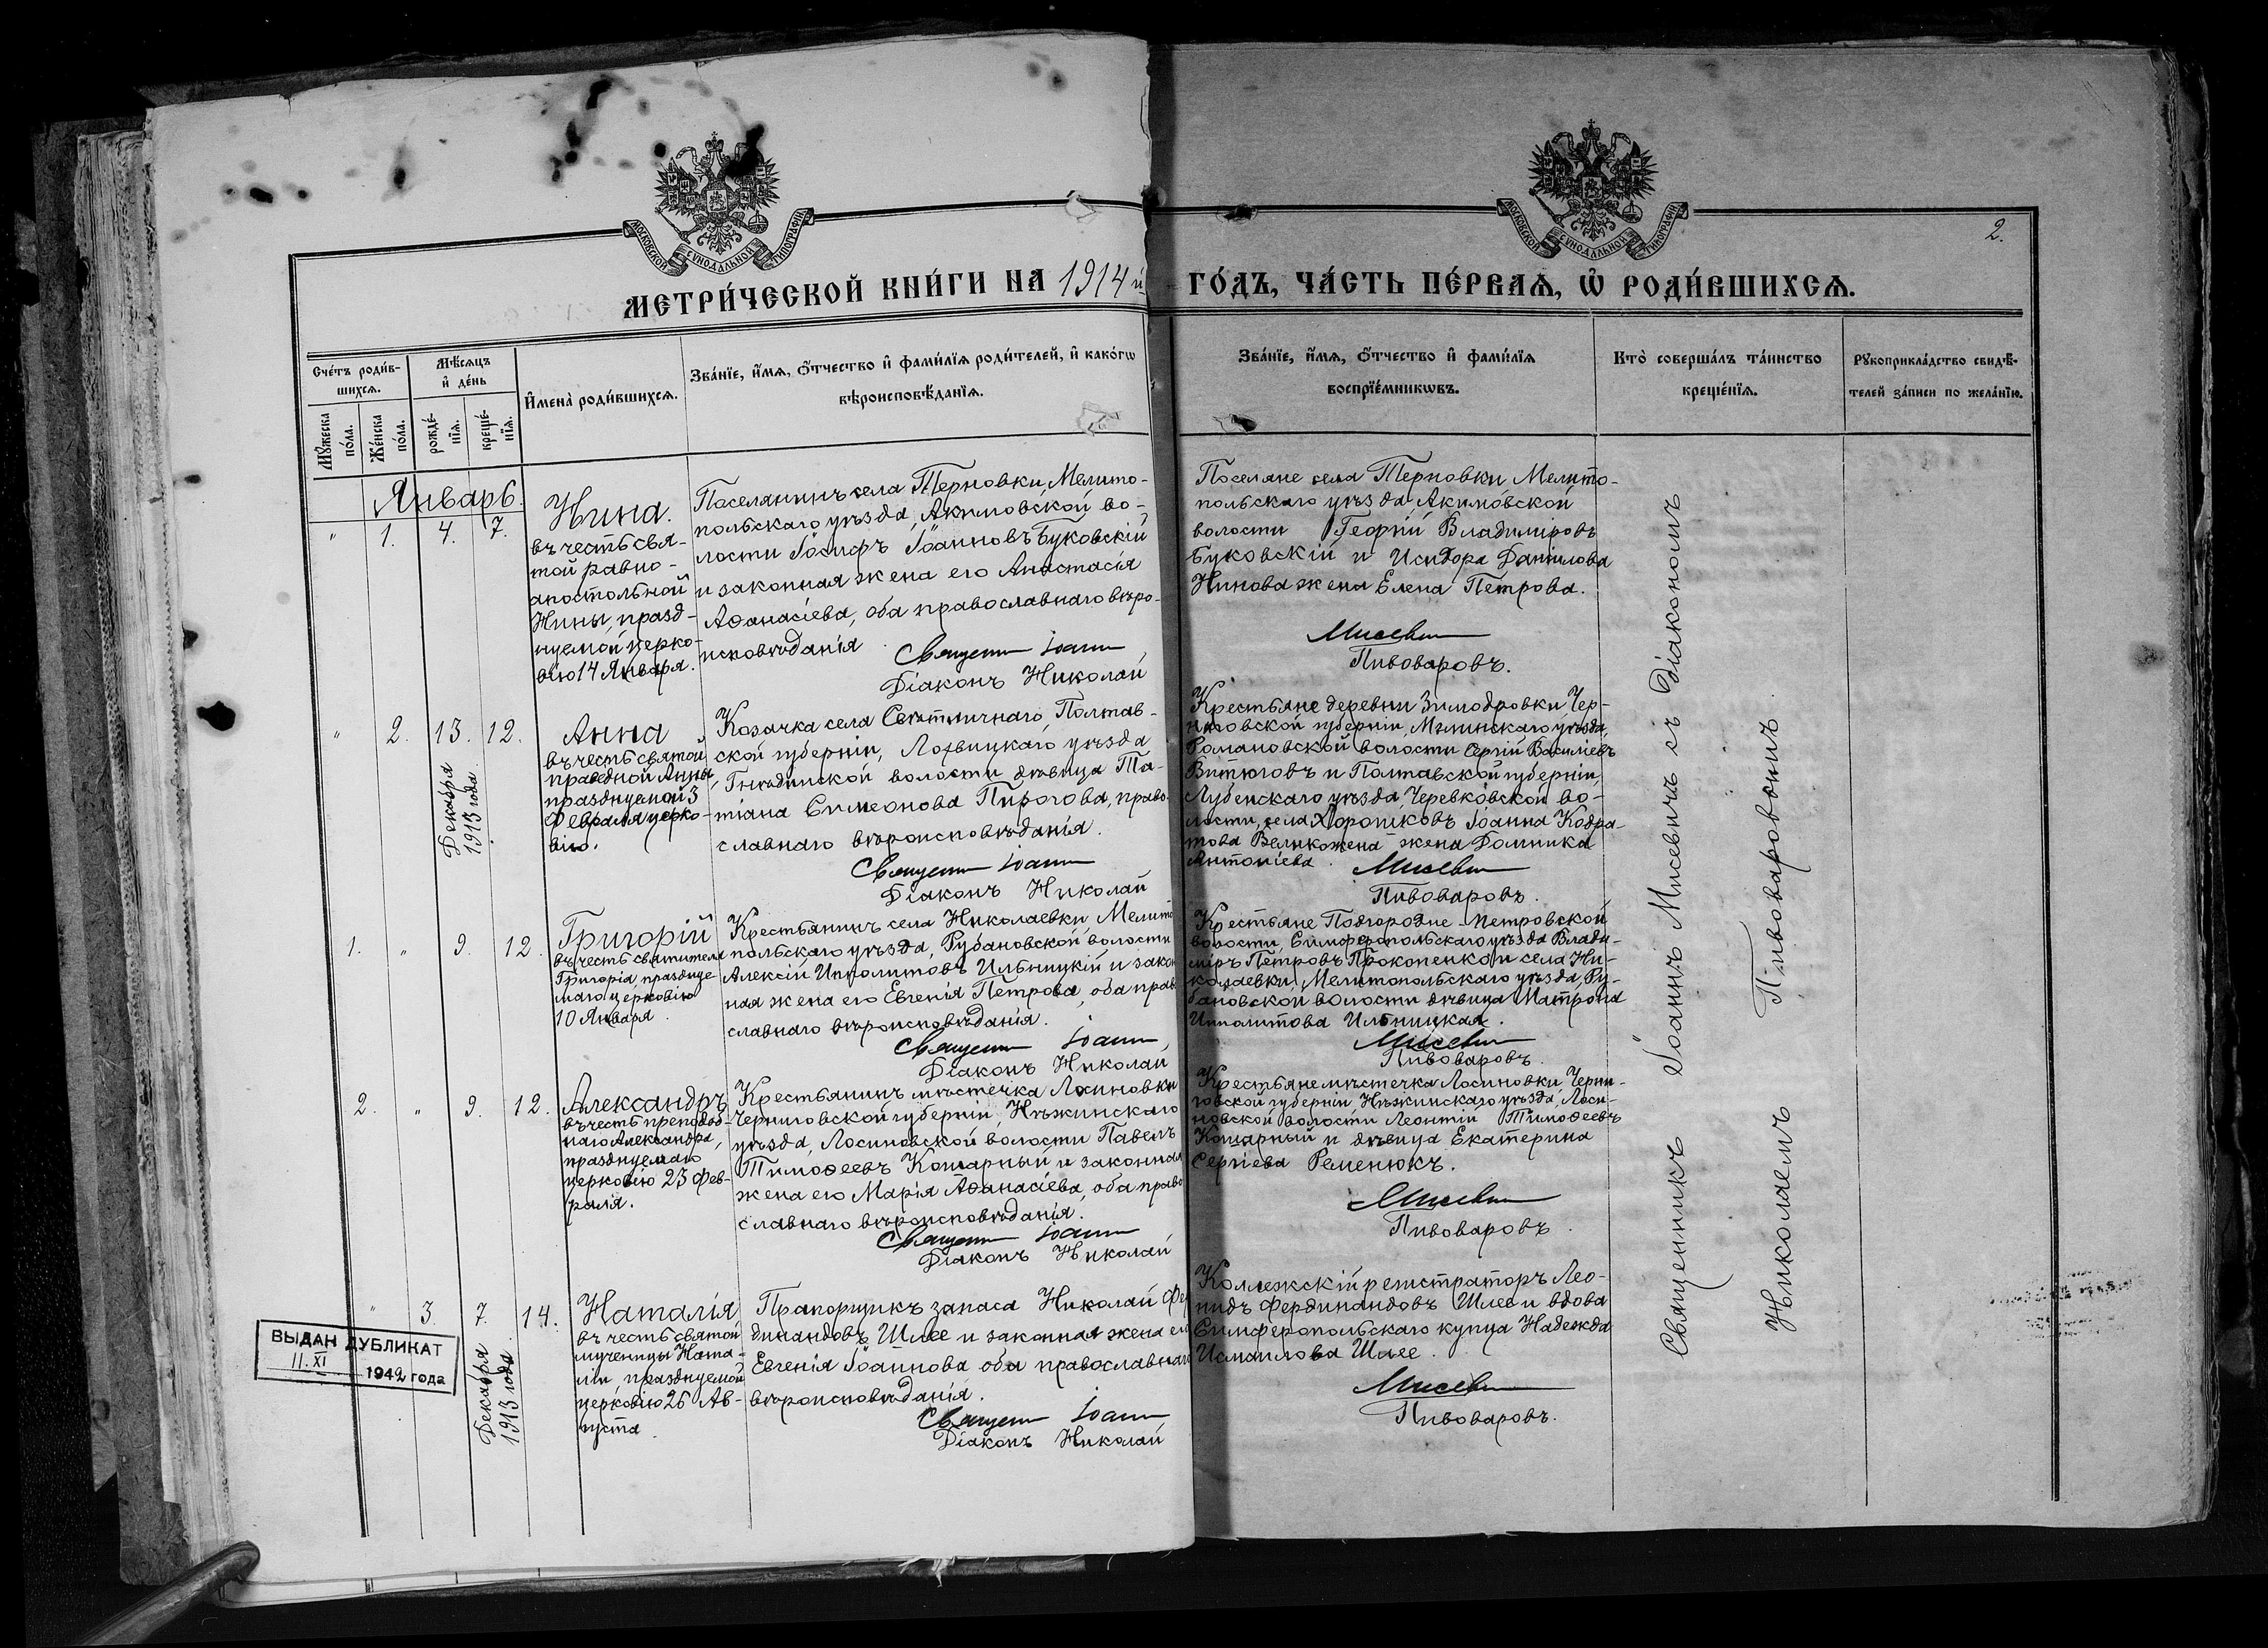 МОСКОВСКОЙ СѴНОДАЛЬНОЙ ТИПОГРАФІИ
МОСКОВСКОЙ СѴНОДАЛЬНОЙ ТИПОГРАФІИ
2.
МЕТРИ́ЧЕСКОЙ КНИ́ГИ НА 1914 й
ГО́ДЪ, ЧА́СТЬ ПЕ́РВАѦ, Ѡ҆ РОДИ́ВШИХСѦ.
Сче́тъ роди́в-
шихсѧ.
Мꙋ́жеска
по́ла.
Же́нска
по́ла.
Мѣ́сѧцъ
и҆ де́нь
рожде́-
нїѧ.
креще́-
нїѧ.
И҆мена̀ роди́вшихсѧ.
Зва́нїе, и҆́мѧ, ѻ҆́тчество и҆ фами́лїѧ роди́телей, и҆ како́гѡ
вѣроисповѣ́данїѧ.
Зва́нїе, и҆́мѧ, ѻ҆́тчество и҆ фами́лїѧ
воспрїе́мникѡвъ.
Кто̀ соверша́лъ та́инство
креще́нїѧ.
Рꙋкоприкла́дство свидѣ́-
телей за́писи по жела́нїю.
Январь.
" 1. 4. 7.
Нина.
въ честь свя-
той равно-
апостольной
Нины, празд-
нуемой церко-
вію 14 Января.
Поселянинъ села Терновки, Мелито-
польскаго уѣзда, Акимовской во-
лости Іосифъ Іоанновъ Буковскій
и законная жена его Анастасія
Аѳанасіева, оба православнаго вѣро-
исповѣданія.
Священн Іоанн
Діаконъ Николай
Поселяне села Терновки Мелито-
польскаго уѣзда, Акимовской
волости Георгій Владиміровъ
Буковскій и Исидора Даніилова
Нинова жена Елена Петрова.
Мисевич
Пивоваровъ.
" 2. 13. 12.
Декабря
1913 года
Анна
въ честь святой
праведной Анны,
празднуемой 3
Февраля церко-
вію.
Козачка села Сѣтничнаго, Полтав-
ской губерніи, Лохвицкаго уѣзда
Гнѣдинской волости дѣвица Та-
тіана Симеонова Пирогова, право-
славнаго вѣроисповѣданія.
Священн Іоанн
Діаконъ Николай
Крестьяне деревни Зимодровки Чер-
ниговской губерніи, Мглинскаго уѣзда,
Романовской волости Сергій Василіевъ
Витюговъ и Полтавской губерніи,
Лубенскаго уѣзда, Черевковской во-
лости, села Хорошковъ Іоанна Кодра-
това Великожена жена Домника
Антоніева.
Мисевич
Пивоваровъ.
1. " 9. 12.
Григорій
въ честь святителя
Григорія, праздн­уе-
маго церковію
10 Января.
Крестьянинъ села Николаевки, Мелито
польскаго уѣзда, Рубановской волости
Алексій Ипполитовъ Ильницкій и закон
ная жена его Евгенія Петрова, оба прав
славнаго вѣроисповѣданія.
Священн Іоанн
Діаконъ Николай
Крестьяне Подгородне-Петровской
волости, Симферопольскаго уѣзда Влади-
міръ Петровъ Прокопенко и села Ни-
колаевки, Мелитопольскаго уѣзда, Ру-
бановской волости дѣвица Матрона
Ипполитова Ильницкая.
Мисевич
Пивоваровъ.
2. " 9. 12.
Александръ
въ честь преподоб-
наго Александра,
празднуемаго
церковію 23 Фев-
раля.
Крестьянинъ мѣстечка Лосиновки
Черниговской губерніи, Нѣжинскаго
уѣзда, Лосиновской волости Павелъ
Тимоѳеевъ Кошарный и законная
жена его Марія Аѳанасіева, оба право
славнаго вѣроисповѣданія.
Священн Іоанн
Діаконъ Николай
Крестьяне мѣстечка Лосиновки, Черни-
говской губерніи Нѣжинскаго уѣзда, Лоси-
новской волости Леонтій Тимоѳеевъ
Кошарный и дѣвица Екатерина
Сергіева Ременюкъ.
Мисевич
Пивоваровъ.
" 3. 7. 14.
Декабря
1913 года
Наталія
въ честь святой
мученицы Ната-
ліи празднуемой
церковію 26 Ав-
густа.
Прапорщикъ запаса Николай Фер
динандовъ Шлее и законная жена его
Евгенія Іоаннова оба православнаго
вѣроисповѣданія.
Священн Іоанн
Діаконъ Николай
Коллежскій регистраторъ Лео-
нидъ Фердинандовъ Шлее и вдова
Симферопольскаго купца Надежда
Исмаилова Шлее.
Мисевич
Пивоваровъ.
Священникъ Іоаннъ Мисевичъ съ діакономъ
Николаемъ Пивоваровымъ.
ВЫДАН ДУБЛИКАТ
11. XI 1942 года